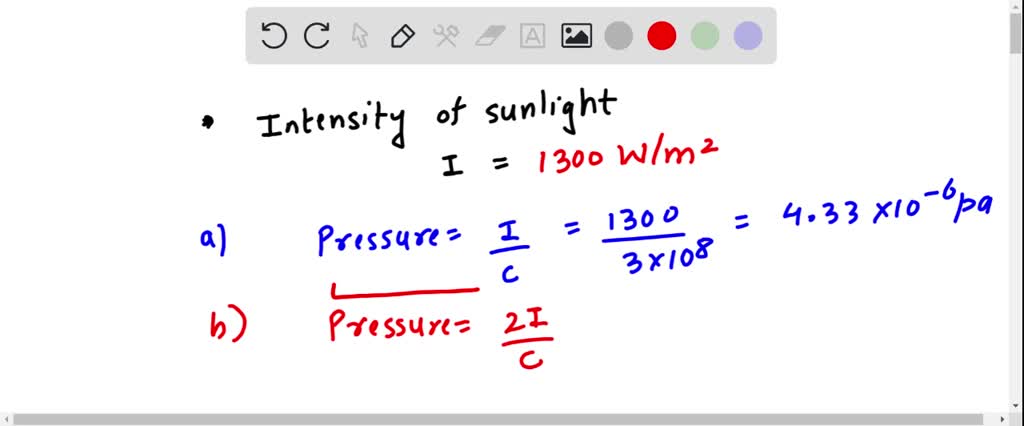 • Intensity of sunlight
I = 1300 W/m²
a) Pressure = I/C = 1300/3×10⁸ = 4.33 ×10⁻⁶ pa
b) Pressure = 2I/C